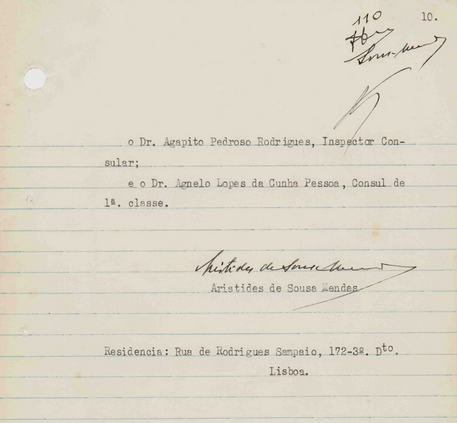 110
10.
Sousa Mendes
o Dr. Agapito Pedroso Rodrigues, Inspector Con-
sular;
e o Dr. Agnelo Lopes da Cunha Pessoa, Consul de
1ª. classe.
Aristides de Sousa Mendes
Aristides de Sousa Mendes
Residencia: Rua de Rodrigues Sampaio, 172-3º. Dto.
Lisboa.